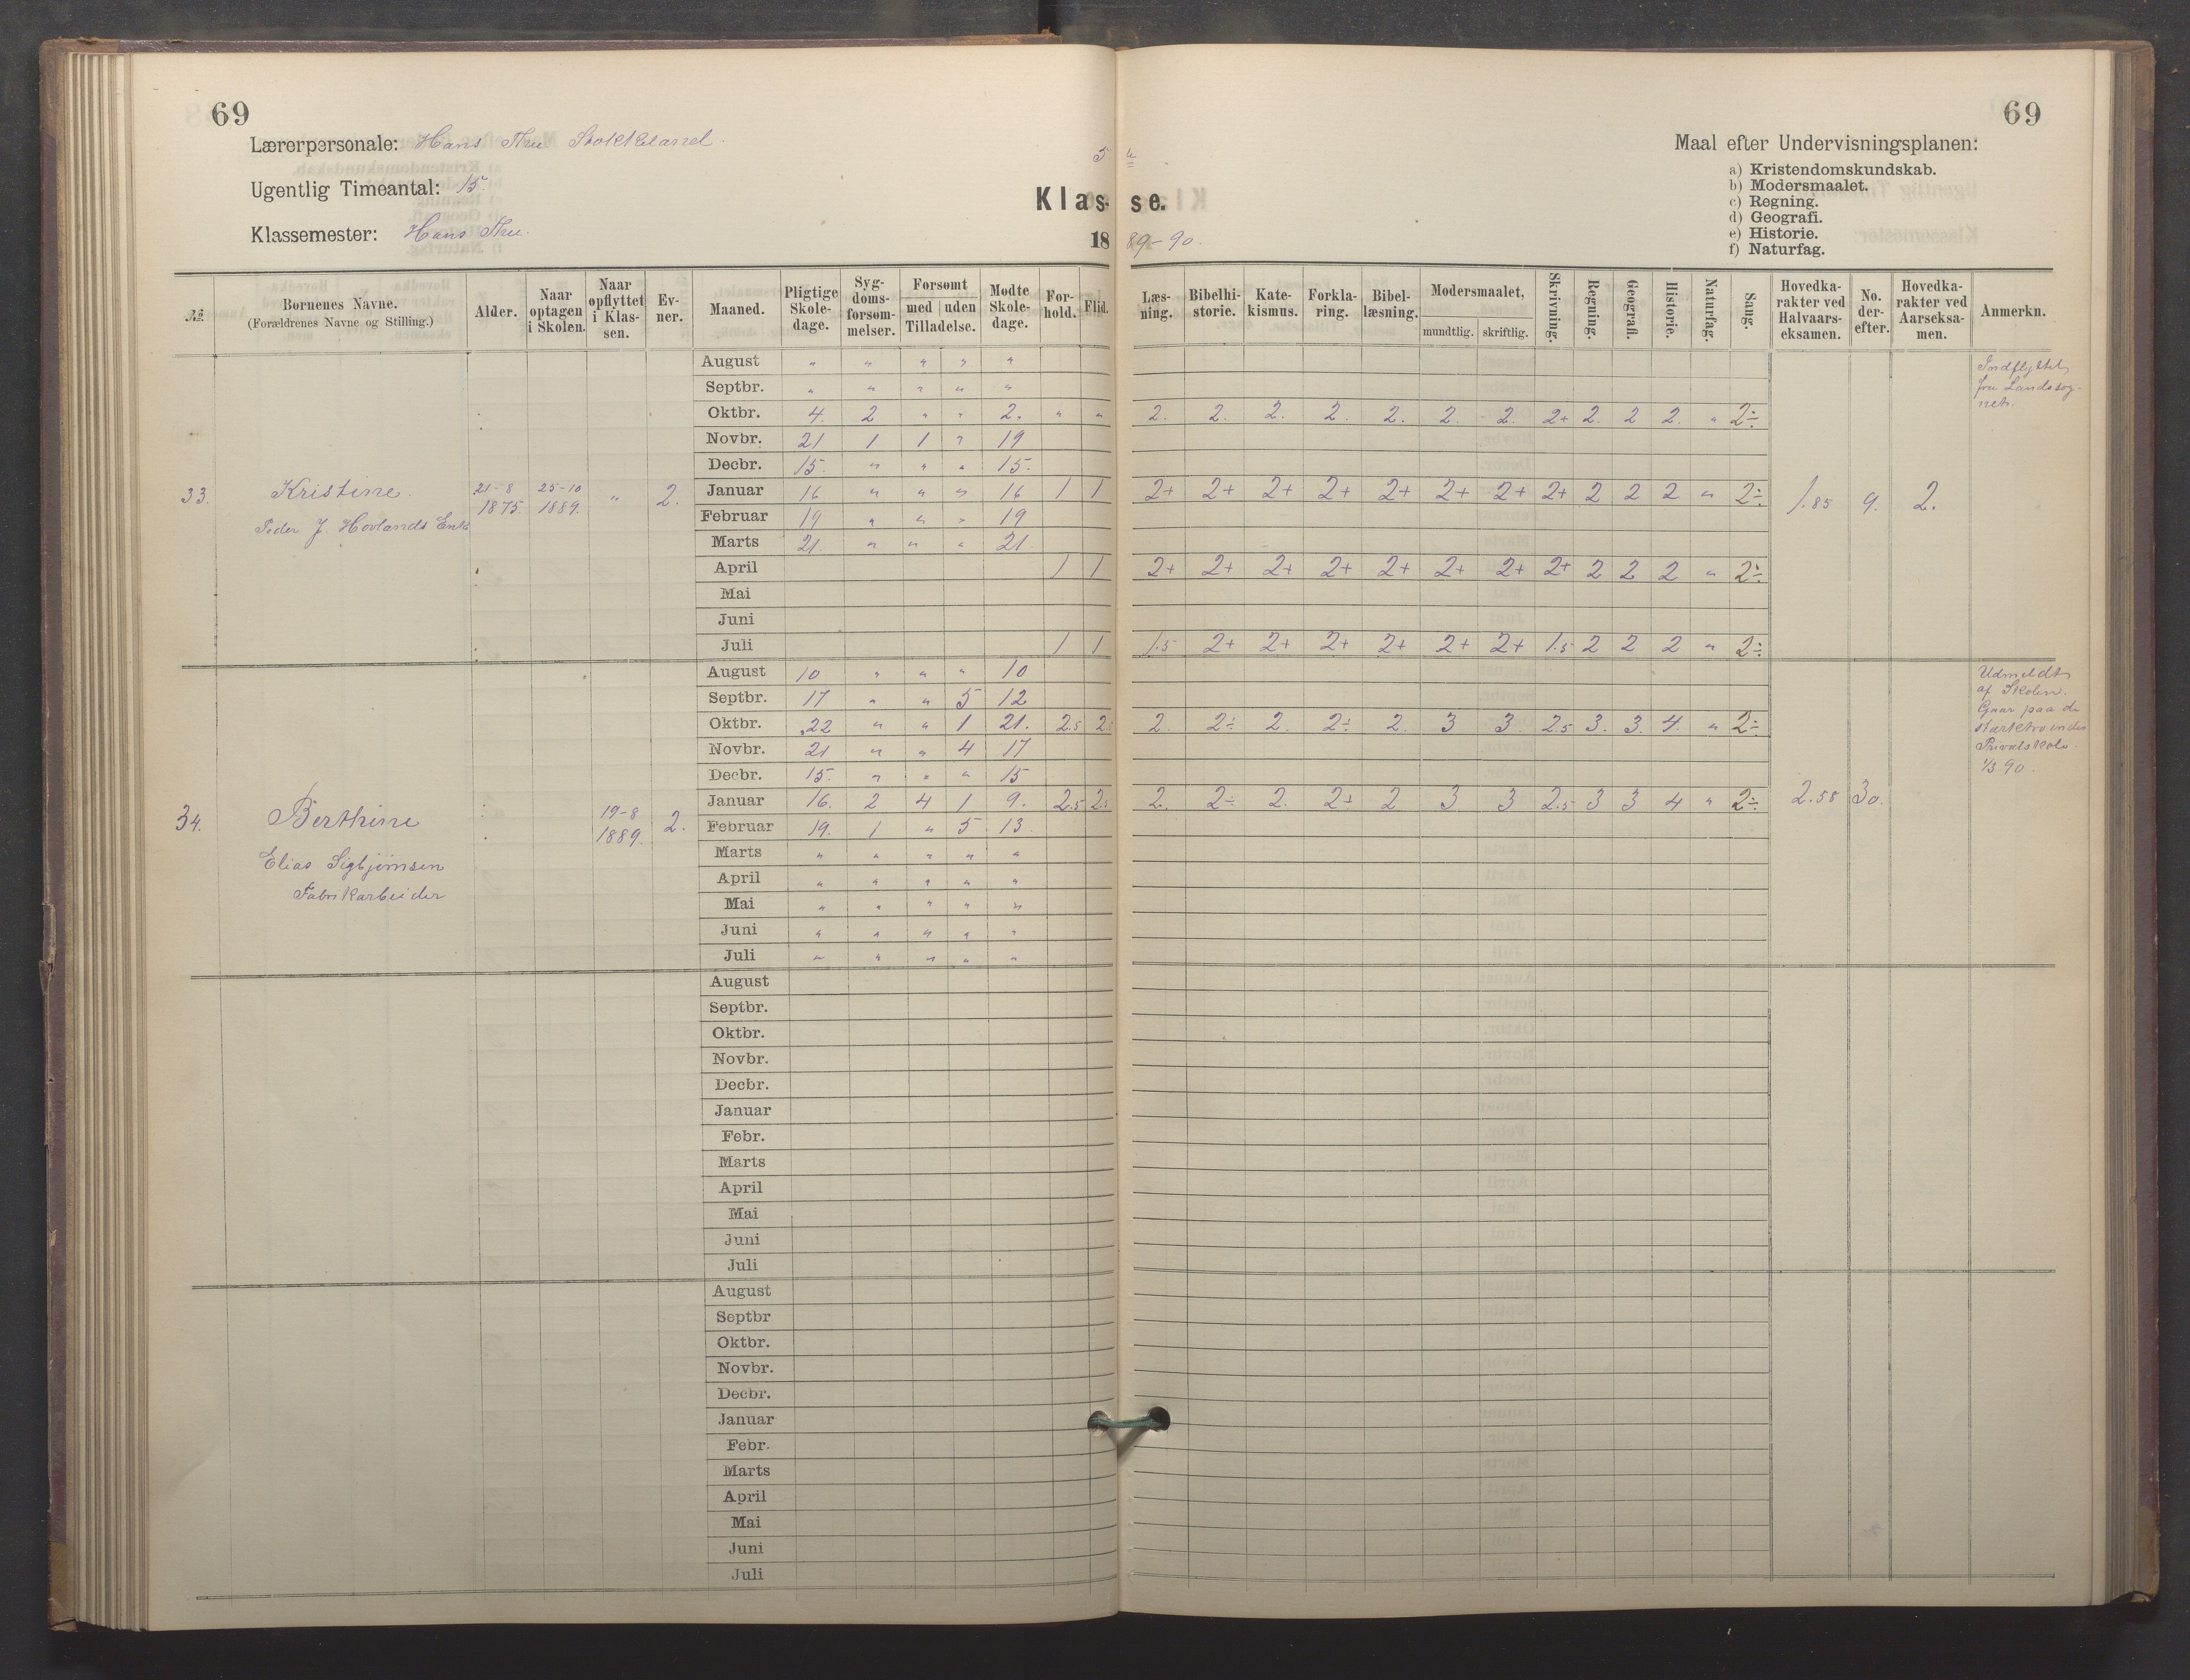 69
69
Lærerpersonale: Hans Thu Stokkeland.
Ugentlig Timeantal: 15.
Klassemester: Hans Thu.
5 te
Klas- se.
18 89-90.
Maal efter Undervisningsplanen:
a) Kristendomskundskab.
b) Modersmaalet.
c) Regning.
d) Geografi.
e) Historie.
f) Naturfag.
№ Børnenes Navne. (Forældrenes Navne og Stilling.) Alder. Naar optagen i Skolen. Naar opflyttet i Klassen. Evner. Maaned. Pligtige Skoledage. Sygdomsforsømmelser. Forsømt med uden Tilladelse. Mødte Skoledage. Forhold. Flid. Læsning. Bibelhistorie. Katekismus. Forklaring. Bibellæsning. Modersmaalet, mundtlig. skriftlig. Skrivning. Regning. Geografi. Historie. Naturfag. Sang. Hovedkarakter ved Halvaarseksamen. No. derefter. Hovedkarakter ved Aarseksamen. Anmerkn.
33. Kristine. 21-8 1875 25-10 1889. " 2.
Peder J. Hovlands Enke
August " " " " "
Septbr. " " " " "
Oktbr. 4. 2 " " 2. " " 2. 2. 2. 2. 2. 2. 2. 2+ 2. 2 2. " 2÷
Novbr. 21 1 1 " 19
Decbr. 15. " " " 15.
Januar 16 " " " 16 1 1 2+ 2+ 2+ 2+ 2+ 2+ 2+ 2+ 2 2 2 " 2÷ 1.85 9. 2.
Februar 19 " " " 19
Marts 21. " " " 21
April 1 1 2+ 2+ 2+ 2+ 2+ 2+ 2+ 2+ 2 2 2 " 2÷
Mai
Juni
Juli 1 1 1.5 2+ 2+ 2+ 2+ 2+ 2+ 1.5 2 2 2 " 2÷
Indflyttet
fra Landssog-
net.
34. Berthine 19-8 1889. 2.
Elias Sigbjørnsen
Fabrikarbeider
August 10 " " " 10
Septbr. 17 " " 5 12
Oktbr. 22 " " 1 21. 2.5 2.5 2. 2÷ 2. 2÷ 2. 3 3. 2.5 3. 3. 4. " 2÷
Novbr. 21 " " 4 17
Decbr. 15. " " " 15
Januar 16. 2 4 1 9. 2.5 2.5 2. 2÷ 2. 2÷ 2 3 3 2.5 3 3 4 " 2÷ 2.58 30.
Februar 19. 1 " 5 13.
Marts " " " " "
April " " " " "
Mai " " " " "
Juni " " " " "
Juli " " " " "
Udmeldt
af Skolen.
Gaar paa de
stærktroendes
Privatskole.
1/3 90.
August
Septbr.
Oktbr.
Novbr.
Decbr.
Januar
Febr.
Marts
April
Mai
Juni
Juli
August
Septbr
Oktbr.
Novbr.
Decbr.
Januar
Febr.
Marts
April
Mai
Juni
Juli